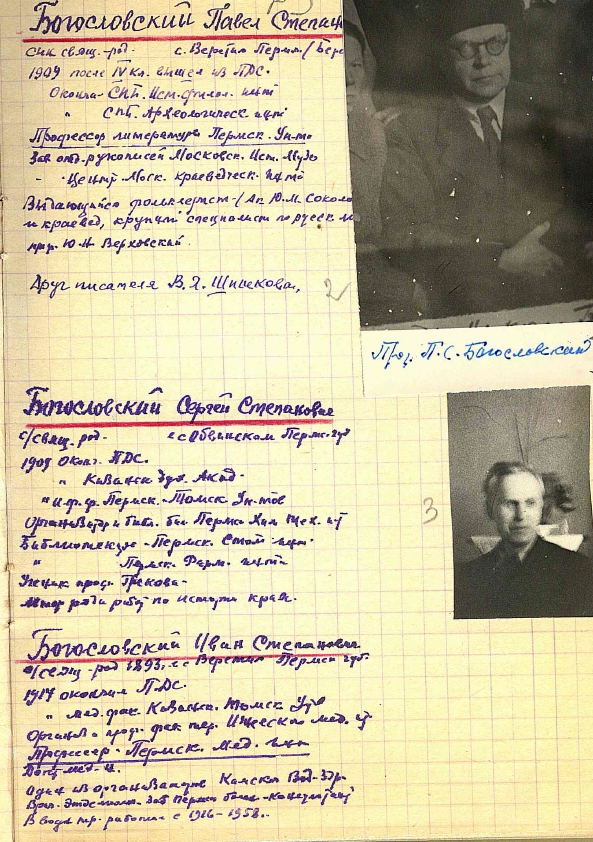 Богословский Павел Степан
сын свящ. род. с. Веретия Перм.
1909 после IV кл. вышел из ПДС.
Окончил СПб. Ист. филол. инт
" СПб. Археологическ. инт
Профессор литературы Пермск. Ун-та
Зав. отд. рукописей Московск. Ист. Музе
" Центр. Моск. краеведческ. инта
Выдающийся фольклорист (Ак. Ю.М. Соколо
и краевед, крупный специалист по русск.
Ю.Н. Верховский.
Друг писателя В. Я. Шишкова,
2
Проф. П. С. Богословский
Богословский Сергей Степанович
с/свящ. род. в с Обвинском Перм. губ
1909 Оконч. ПДС.
" Казанск. дух. Акад.
" и.ф.ф. Пермск. Томск Ун-тов
Организатор библ. Перм.
Библиотекарь Пермск. Стом. инт.
" Пермск. Фарм. инта
Ученик проф. Грекова
Автор ряда работ по истории края.
3
Богословский Иван Степанович
с/свящ род 1893. в с Веретия Пермск губ.
1917 окончил ПДС.
" мед. фак. Казанск. Томск Ун
Организ. проф. фак. тер. Ижевского мед. ин
Профессор Пермск. Мед. инт
Докт. мед. н.
Один из организаторов Камской Вод. Здр.
В вод. тр. работал с 1926-1958.